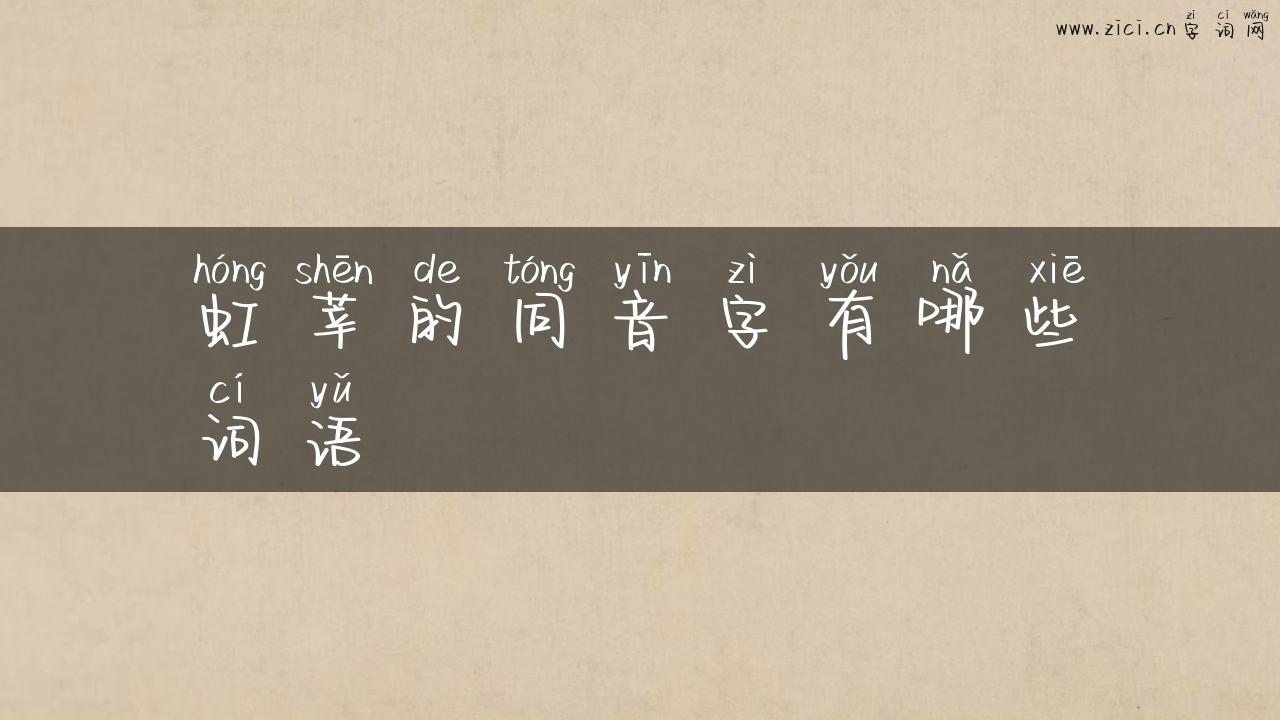 zì cí wǎng
www.zici.cn 字词网
hóng shēn de tóng yīn zì yǒu nǎ xiē
虹莘的同音字有哪些
cí yǔ
词语